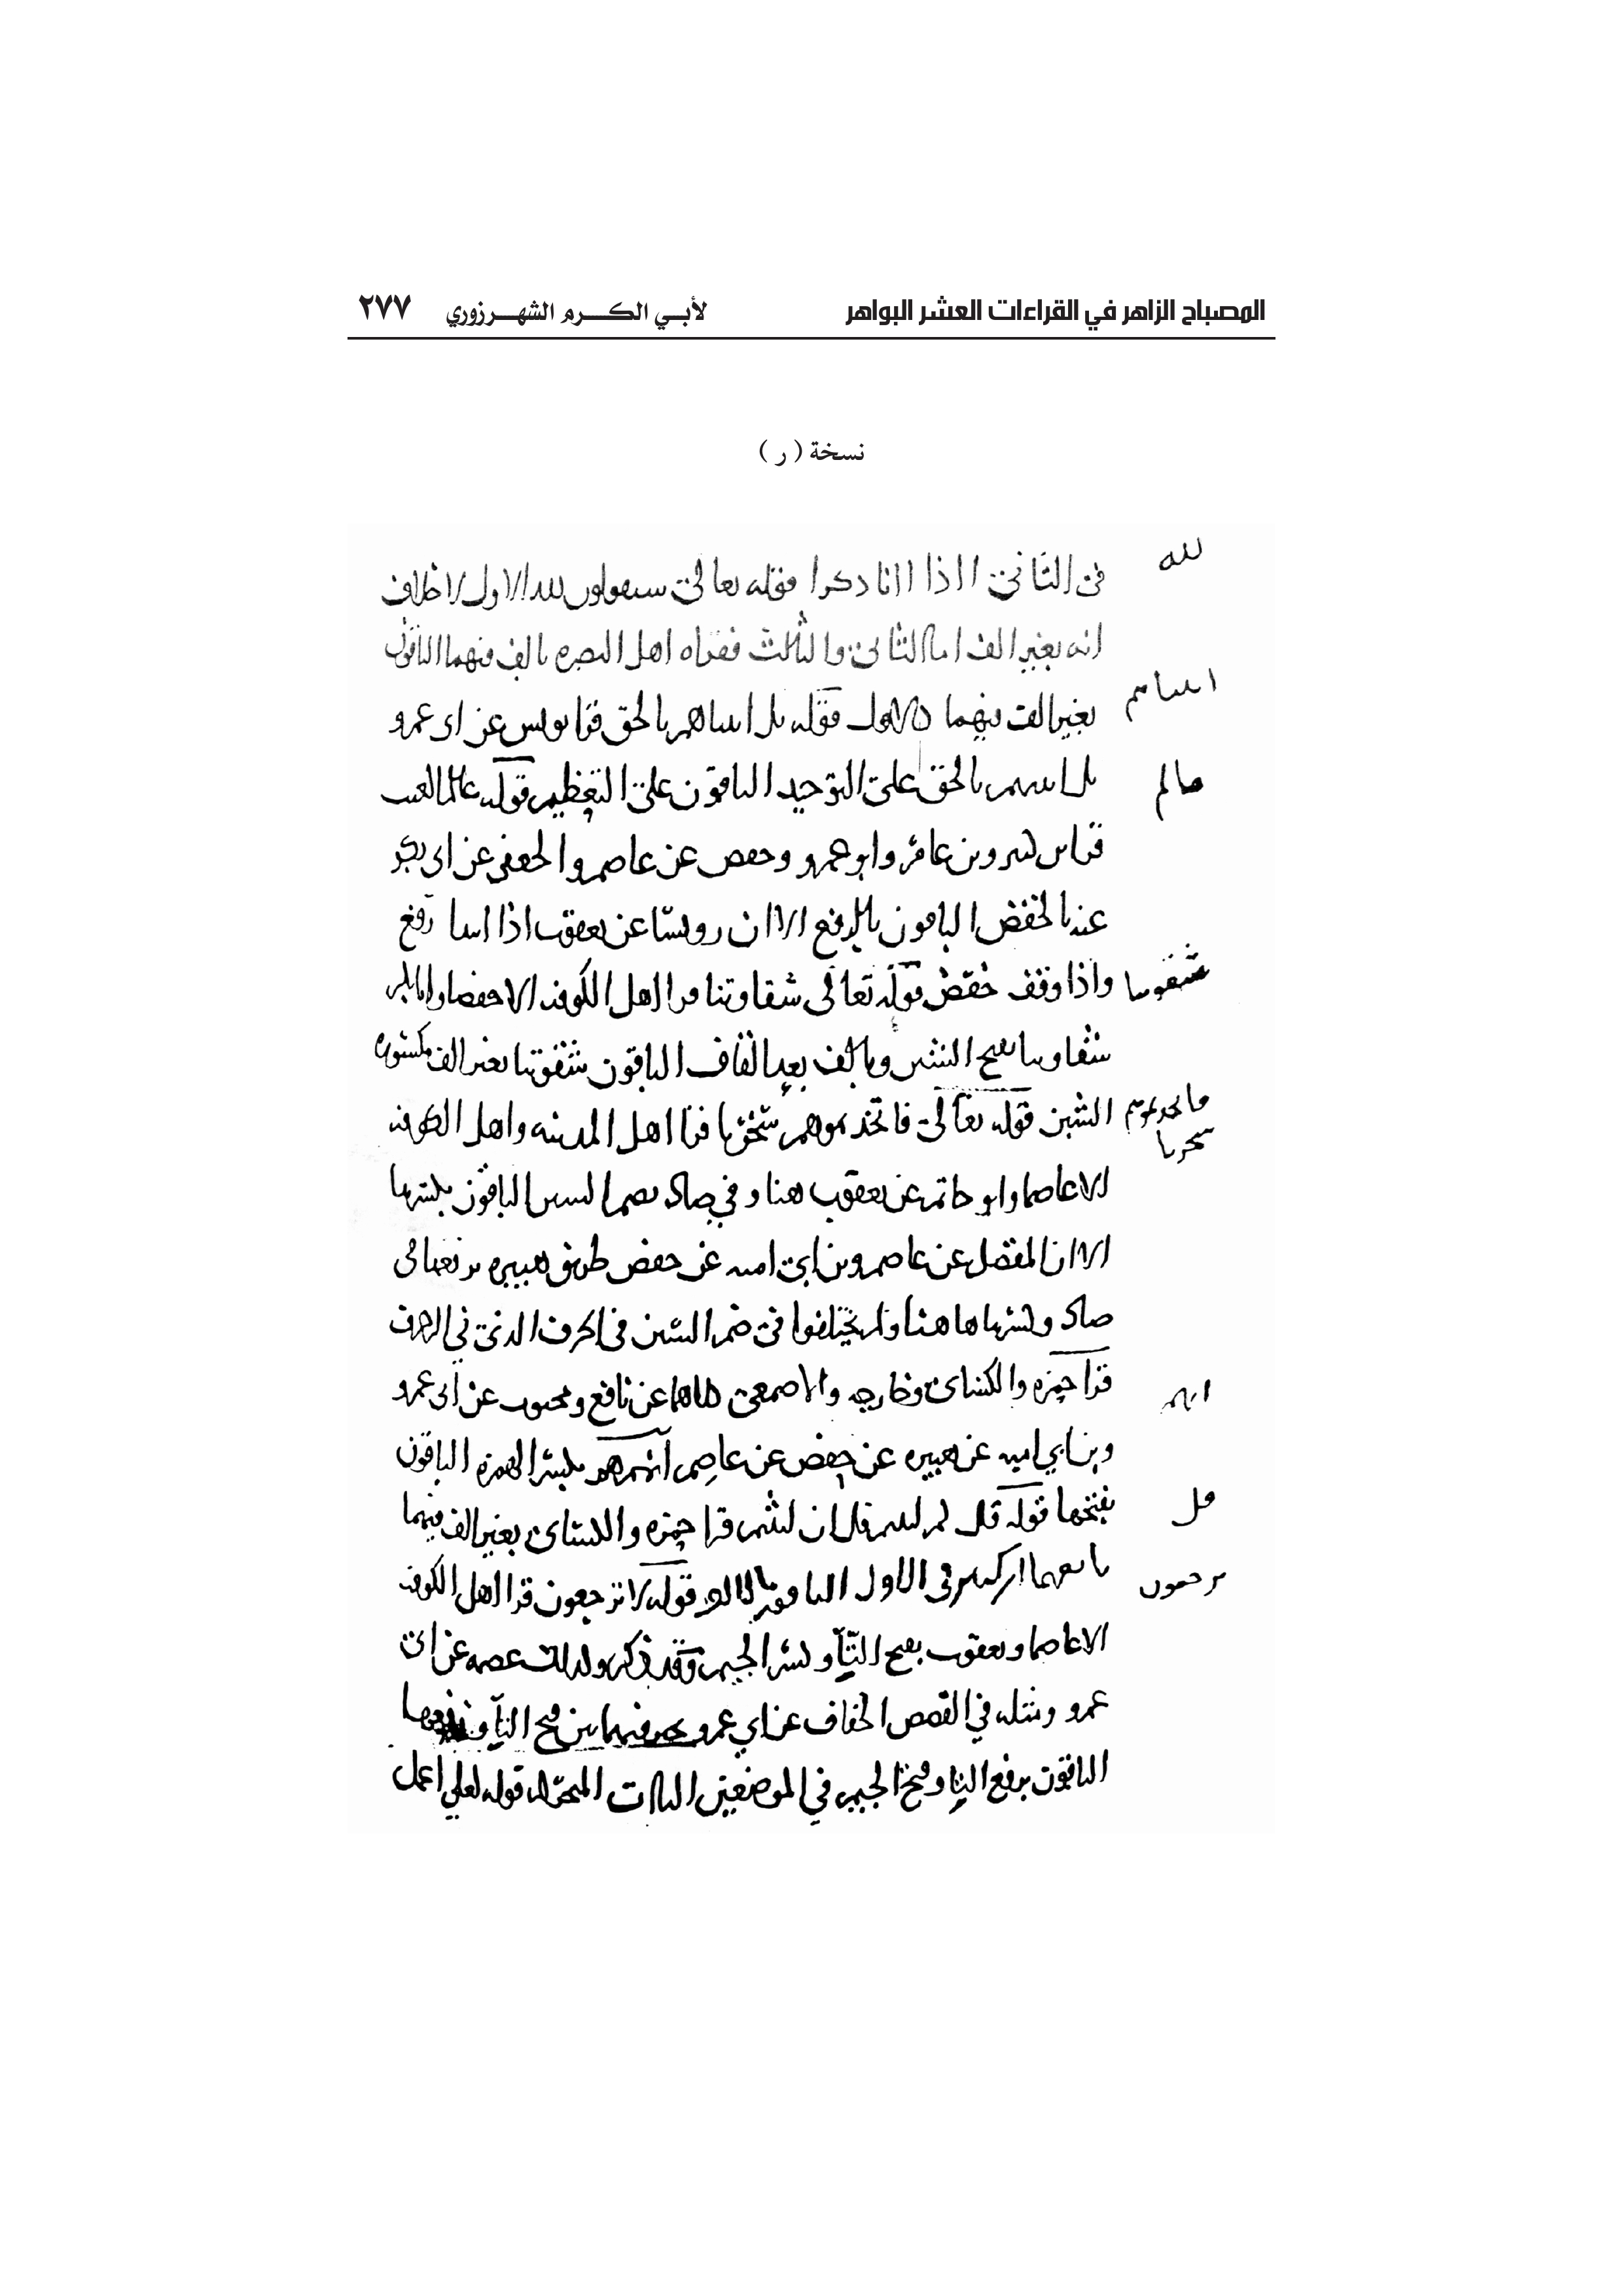 المصباح الزاهر في القراءات العشر البواهر لأبي الكرم الشهرزوري ٢٧٧
نسخة ( ر )
لله
في الثاني ااذا اانا ذكرا قوله تعالى سيقولون لله الاول لا خلاف
انه بغير الف اما الثاني والثالث فقراه اهل البصره بالف فيهما الباقون
بغير الف فيهما كالاول قوله بل اتيناهم بالحق قرا يونس عن ابي عمرو
اتيناهم
بل اتيتهم بالحق على التوحيد الباقون على التعظيم قوله عالم الغيب
عالم
قرا بن كثير وبن عامر وابو عمرو وحفص عن عاصم والجعفي عن ابي بكر
عنه بالخفض الباقون بالرفع الا ان رويسا عن يعقوب اذا ابتدا رفع
واذا وقف خفض قوله تعالى شقاوتنا قرا اهل الكوفه الا حفصا وابانا
شقوتنا
شقاوتنا بفتح الشين وبالف بعد القاف الباقون شقوتنا بغير الف مكسوره
الشين قوله تعالى فاتخذتموهم سخريا قرا اهل المدينه واهل الكوفه
فاتخذتموهم
سخريا
الا عاصما وابو حاتم عن يعقوب هنا وفي صاد بضم السين الباقون بكسرها
الا ان المفضل عن عاصم وبن ابي اميه عن حفص طريق هبيره برفعها في
صاد وكسرها هاهنا ولم يختلفوا في ضم السين في الحرف الذي في الزخرف
قرا حمزه والكسائي وخارجه والاصمعي كلاهما عن نافع ومحبوب عن ابي عمرو
انهم
وبن ابي اميه عن هبيره عن حفص عن عاصم انهم هم بكسر الهمزه الباقون
بفتحها قوله قل كم لبثتم قل ان لبثتم قرا حمزه والكسائي بغير الف فيهما
قل
تابعهما بن كثير في الاول الباقون قال بالف قوله لا ترجعون قرا اهل الكوفه
ترجعون
الا عاصما ويعقوب بفتح التا وكسر الجيم وقد ذكر وكذلك عصمه عن ابي
عمرو ومثله في القصص الخفاف عن ابي عمرو فيهما بين فتح التا ورفعها
الباقون برفع التا وفتح الجيم في الموضعين الياات المحركه قوله لعلي اعمل